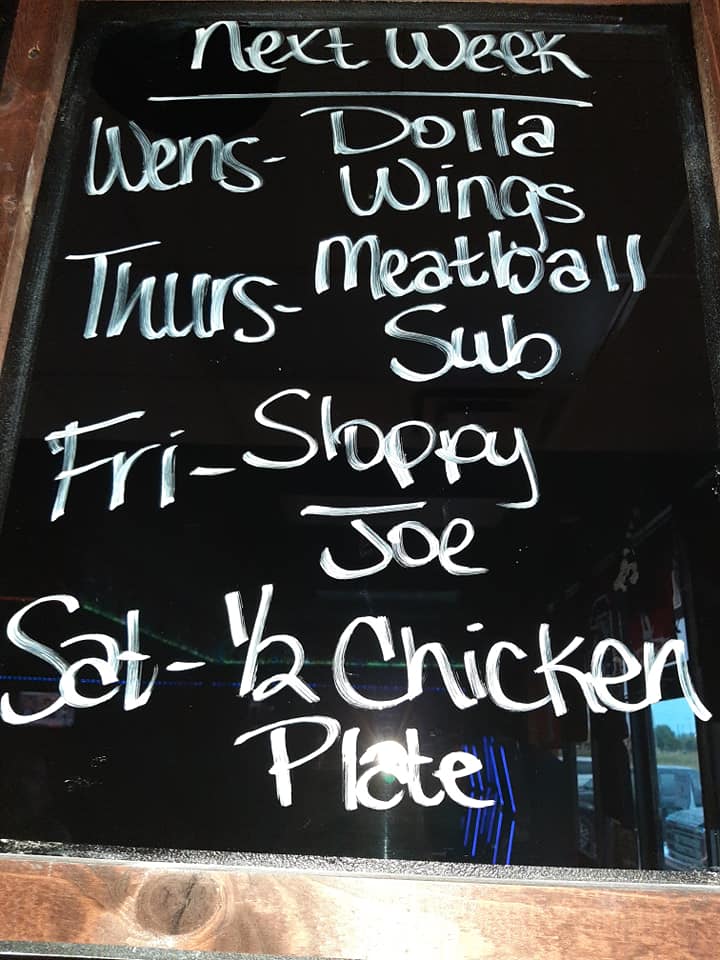 Next Week
Wens- Dolla
Wings
Thurs- Meatball
Sub
Fri- Sloppy
Joe
Sat- 1/2 Chicken
Plate